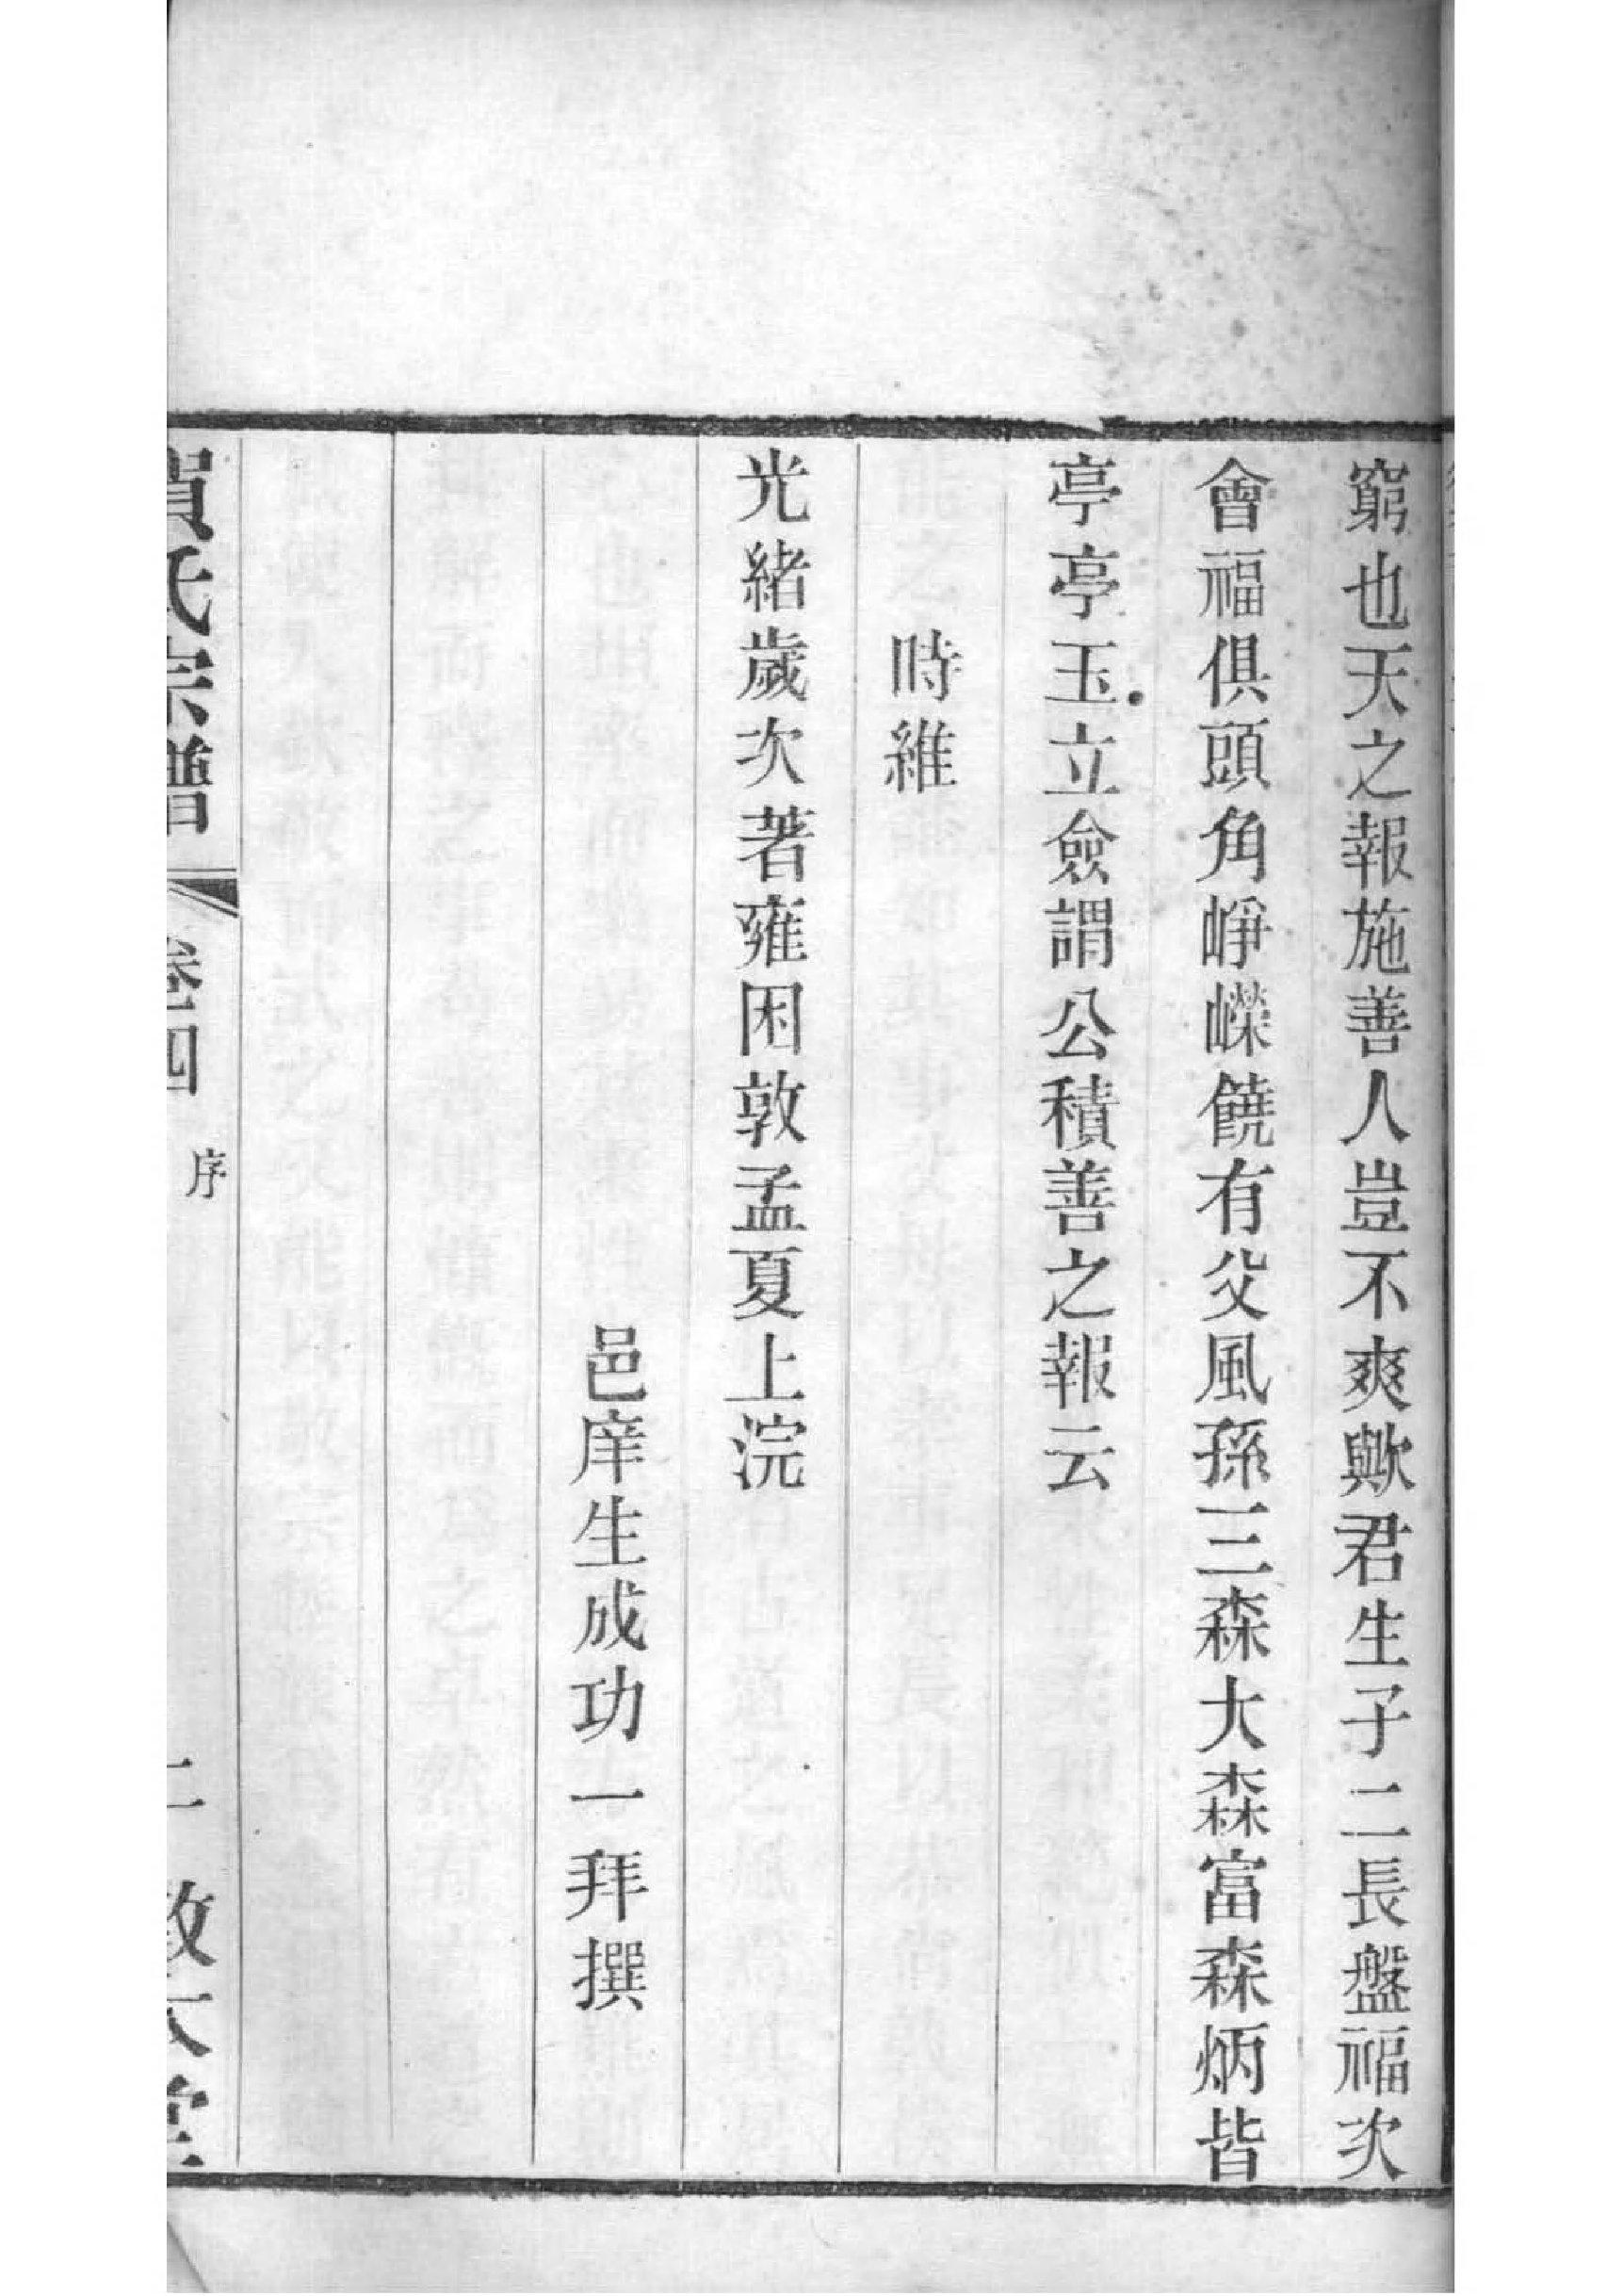 窮也天之報施善人豈不爽歟君生子二長盤福次
會福俱頭角崢嶸饒有父風孫三森大森富森炳皆
亭亭玉立僉謂公積善之報云
時維
光緒歲次著雍困敦孟夏上浣
邑庠生成功一拜撰
賀氏宗譜 卷四 序 二 敦本堂